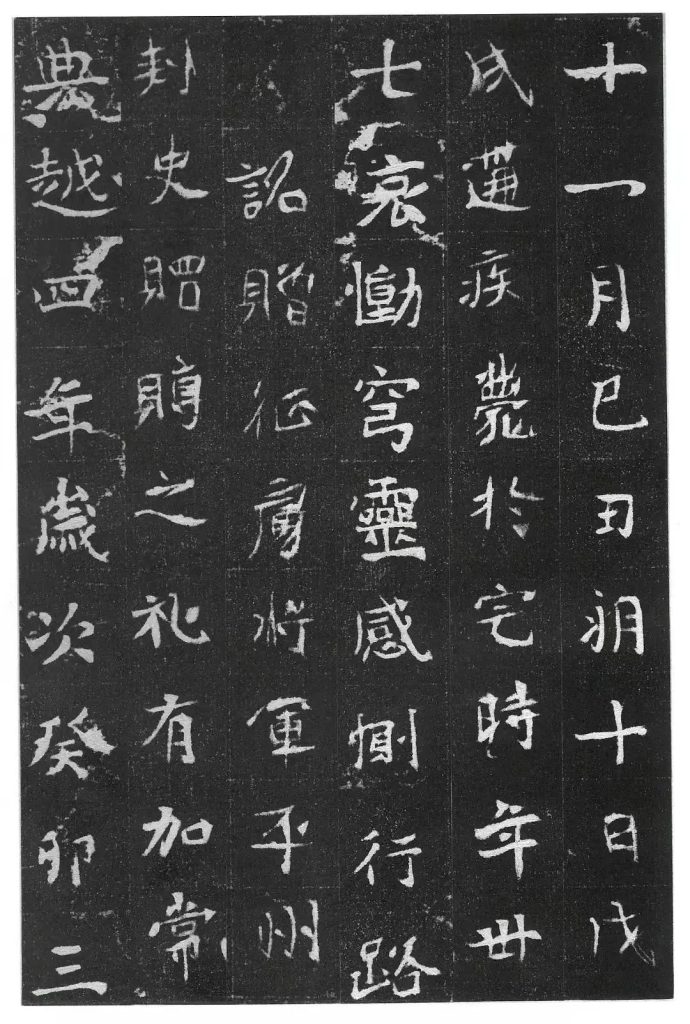 十一月己丑朔十日戊
戌遘疾薨於宅時年卌
七哀慟穹靈感惻行路
詔贈征虜將軍平州
刺史賵賻之礼有加常
典越四年歲次癸卯三